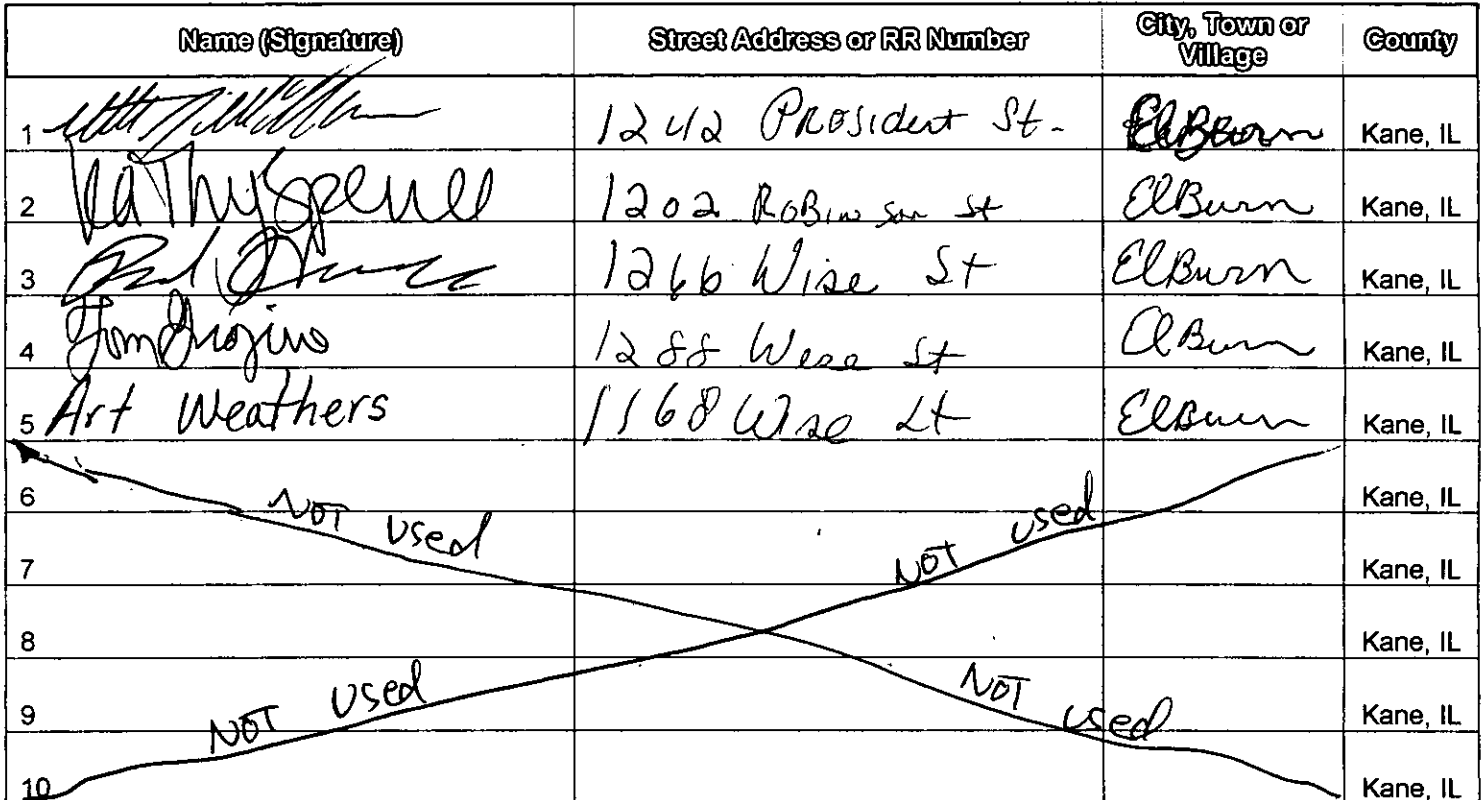 Name (Signature) Street Address or RR Number City, Town or Village County
1 1242 PROSident St. ElBurn Kane, IL
2 KaThy Spence 1202 RoBinson St ElBurn Kane, IL
3 1266 Wise St ElBurn Kane, IL
4 Tom 1288 Wise St ElBurn Kane, IL
5 Art Weathers 1168 Wise St ElBurn Kane, IL
6 NOT used NOT used Kane, IL
7 Kane, IL
8 Kane, IL
9 NOT used NOT used Kane, IL
10 Kane, IL